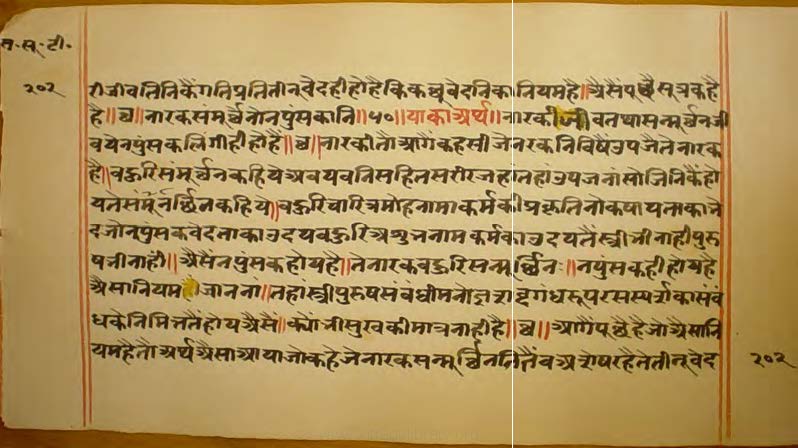 त. सू. टी.
२०२
री जीवनि निकैं गति प्रति तीन वेद ही होहै कि कछु वेदनिका नियम है॥ऐसैं पूछै सूत्र कहै
है॥छ॥नारकसंमूर्छनो नपुंसकानि॥५०॥याका अर्थ॥नारकी जी व तथा सन्मूर्छन जी
व ये नपुंसक लिंगी ही होहैं॥छ॥नारकी तौ आगैं कहसी जे नरकनि विषैं उपजे ते नारक
है॥बहुरि संमूर्छन कहिये अवयवनि सहित सरीर जहां तहां उपजनां सो जिनिकैं हो
य ते संमूर्छिन कहिये॥बहुरि चारित्रमोहनामा कर्म की प्रकृति नोकषाय ताका भे
द जो नपुंसकवेद ताका उदय बहुरि अशुभनाम कर्मका उदय तैं स्त्री भी नाही पुरु
ष भी नाही॥ऐसे नपुंसक होय है॥ते नारक बहुरि सन्मूर्छिनः॥नपुंसक ही होय है
ऐसा नियम जाननां॥तहां स्त्रीपुरुष संबंधी मनोज्ञ शब्द गंध रूप रस स्पर्श का संबं
ध के निमित्त तैं होय ऐसैं॥क्यों भी सुख की मात्र नाही है॥छ॥आगैं पूछै है जो ऐसा नि
यम है तौ अर्थ ऐसा आया जो कहे जे नारक सन्मूर्छिन तितैं अवशेष रहे ते तीन वेद
२०२